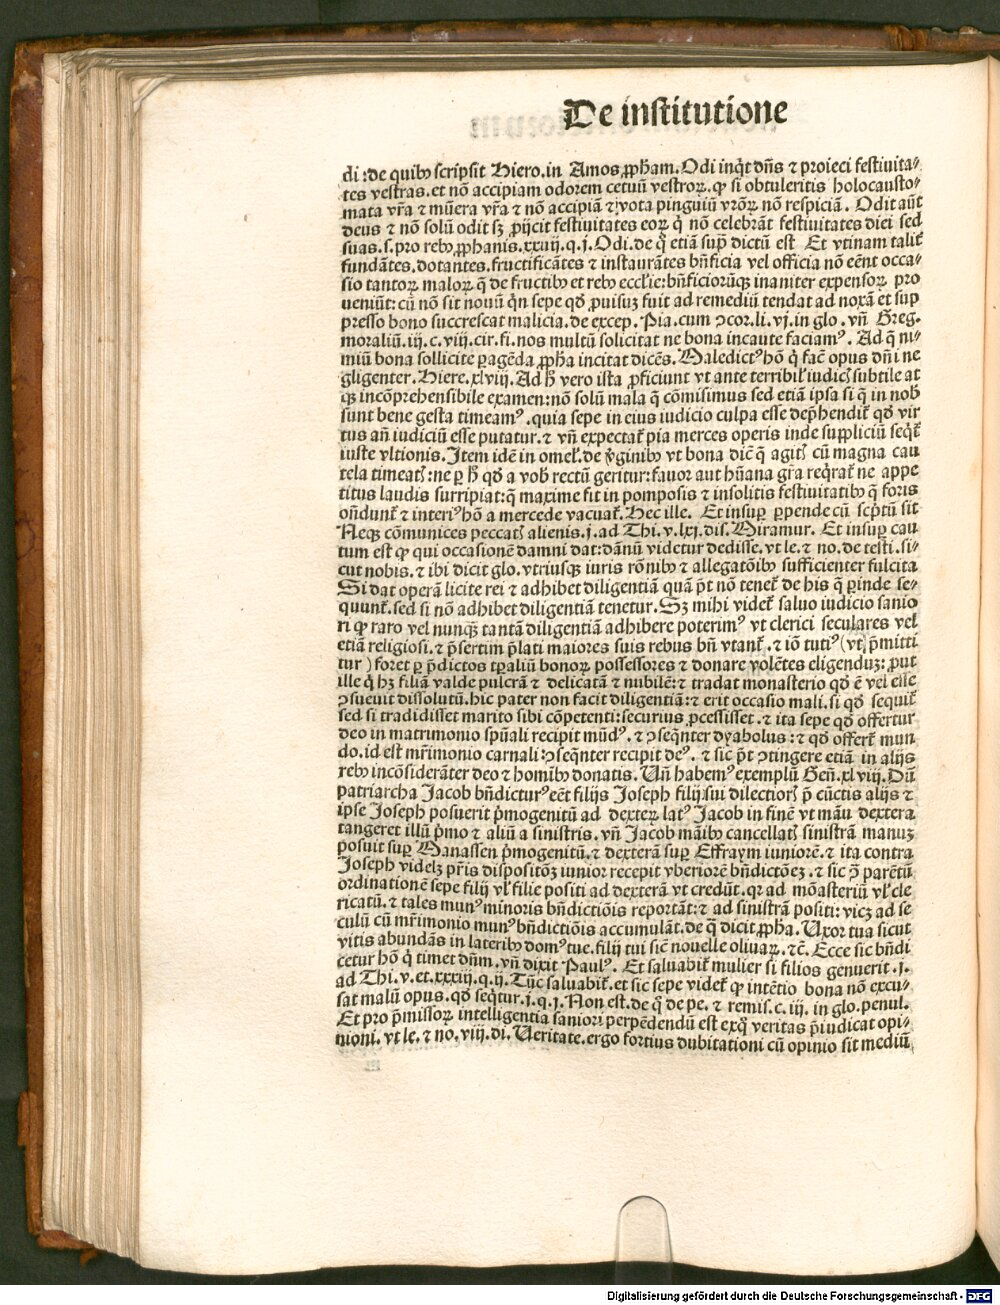 De institutione
di :de quibꝰ scripsit Hiero.in Amos ꝓph̄am.Odi inq̇t dn̄s ⁊ proieci festiuita⸗
tes vestras.et nō accipiam odorem cetuū vestroꝝ.ꝙ si obtuleritis holocausto⸗
mata vr̄a ⁊ mūera vr̄a ⁊ nō accipiā ⁊ vota pinguiū vr̄oꝝ nō respiciā. Odit aūt
deus ⁊ nō solū odit sꝫ ꝓijcit festiuitates eoꝝ q̇ nō celebrāt festiuitates diei sed
suas.s.pro rebꝰ ꝓphanis.xxvij.q.j.Odi.de q̄ etiā supͣ dictū est Et vtinam talit̄
fundātes.dotantes.fructificātes ⁊ instaurātes bn̄ficia vel officia nō eēnt occa⸗
sio tantoꝝ maloꝝ q̄ de fructibꝰ et rebꝰ ecclie:bn̄ficiorūqꝫ inaniter expensoꝝ pro
ueniūt:cū nō sit nouū qn̄ sepe qd̄ ꝓuisuꝫ fuit ad remediū tendat ad noxā et sup
presso bono succrescat malicia.de excep. Pia.cum ꝯcor.li.vj.in glo .vn̄ Greg.
moraliū.iij.c.viij.cir.fi.nos multū solicitat ne bona incaute faciamꝰ. Ad q̄ ni⸗
miū bona sollicite ꝑagēda ꝓph̄a incitat dicēs.Maledictꝰ hō q̇ fac̄ opus dn̄i ne
gligenter.Hiere.xlviij.Ad h̄ vero ista ꝓficiunt vt ante terribil̄ iudicꝭ subtile at
qꝫ incōprehensibile examen:nō solū mala q̄ cōmisimus sed etiā ipsa si q̄ in nob̄
sunt bene gesta timeamꝰ.quia sepe in eius iudicio culpa esse dep̄hendit̄ qd̄ vir
tus an̄ iudiciū esse putatur.⁊ vn̄ expectat̄ pia merces operis inde suppliciū seq̄t̄
iuste vltionis.Item idē in omel̄.de v̄ginibꝰ vt bona dic̄ q̄ agitꝭ cū magna cau
tela timeatꝭ:ne ꝑ h̄ qd̄ a vob̄ rectū geritur:fauor aut hūana gr̄a reqrat̄ ne appe
titus laudis surripiat:q̄ maxime fit in pomposis ⁊ insolitis festiuitatibꝰ q̄ foris
on̄dunt̄ ⁊ interiꝰ hō a mercede vacuat̄.Hec ille. Et insuꝑ ꝑpende cū scp̄tū sit
Neqꝫ cōmunices peccatꝭ alienis.j.ad Thi.v.lxj.dis.Miramur. Et insuꝑ cau
tum est ꝙ qui occasionē damni dat:dānū videtur dedisse.vt le.⁊ no.de testi.si⸗
cut nobis.⁊ ibi dicit glo.vtriusqꝫ iuris rōnibꝰ ⁊ allegatōibꝰ sufficienter fulcita
Si dat operā licite rei ⁊ adhibet diligentiā quā pōt nō tenet̄ de his q̄ ꝑinde se⸗
quunt̄.sed si nō adhibet diligentiā tenetur.Sꝫ mihi videt̄ saluo iudicio sanio
ri ꝙ raro vel nunqꝫ tantā diligentiā adhibere poterimꝰ vt clerici seculares vel
etiā religiosi.⁊ p̄sertim p̄lati maiores suis rebus bn̄ vtant̄.⁊ iō tutiꝰ (vt p̄mitti
tur ) foret ꝑ p̄dictos tꝑaliū bonoꝝ possessores ⁊ donare volētes eligenduꝫ:ꝓut
ille q̇ hꝫ filiā valde pulcrā ⁊ delicatā ⁊ nubilē:⁊ tradat monasterio qd̄ ē vel esse
ꝯsueuit dissolutū.hic pater non facit diligentiā:⁊ erit occasio mali.si qd̄ sequit̄
sed si tradidisset marito sibi cōpetenti:securius ꝓcessisset.⁊ ita sepe qd̄ offertur
deo in matrimonio spūali recipit mūdꝰ.⁊ ꝯseq̄nter dyabolus:⁊ qd̄ offert̄ mun
do.id est mr̄imonio carnali:ꝯseq̄nter recipit deꝰ.⁊ sic pōt ꝯtingere etiā in alijs
rebꝰ incōsiderāter deo ⁊ hoībꝰ donatis. Un̄ habemꝰ exemplū Gen̄.xlviij.Dū
patriarcha Jacob bn̄dicturꝰ eēt filijs Joseph filij sui dilectiorꝭ p̄ cūctis alijs ⁊
ipse Joseph posuerit p̄mogenitū ad dexteꝝ latꝰ Jacob in finē vt māu dextera
tangeret illū p̄mo ⁊ aliū a sinistris.vn̄ Jacob māibꝰ cancellatꝭ sinistrā manuꝫ
posuit suꝑ Manassen p̄mogenitū.⁊ dexterā suꝑ Effraym iuniorē.⁊ ita contra
Joseph videlꝫ pr̄is dispositōꝫ iunior recepit vberiorē bn̄dictōeꝫ.⁊ sic ꝯ̄ parētū
ordinationē sepe filij vl̄ filie positi ad dexterā vt credūt.qr ad mōasteriū vl̄ cle
ricatū.⁊ tales munꝰ minoris bn̄dictiōis reportāt:⁊ ad sinistrā positi:vicꝫ ad se
culū cū mr̄imonio munꝰ bn̄dictiōis accumulāt.de q̄ dicit ꝓph̄a.Uxor tua sicut
vitis abundās in lateribꝰ domꝰ tue.filij tui sic̄ nouelle oliuaꝝ.⁊c̄. Ecce sic bn̄di
cetur hō q̇ timet dn̄m.vn̄ dixit Paulꝰ. Et saluabit̄ mulier si filios genuerit.j.
ad Thi.v.et.xxxiij.q.ij.Tūc saluabit̄.et sic sepe videt̄ ꝙ intētio bona nō excu⸗
sat malū opus.qd̄ seq̄tur.j.q.j.Non est.de q̄ de pe.⁊ remis.c.iij. in glo.penul.
Et pro p̄missoꝝ intelligentia saniori perpēdendū est exq̇ veritas p̄iudicat opi⸗
nioni.vt le.⁊ no.viij.di.Veritate.ergo fortius dubitationi cū opinio sit mediū
Digitalisierung gefördert durch die Deutsche Forschungsgemeinschaft - DFG